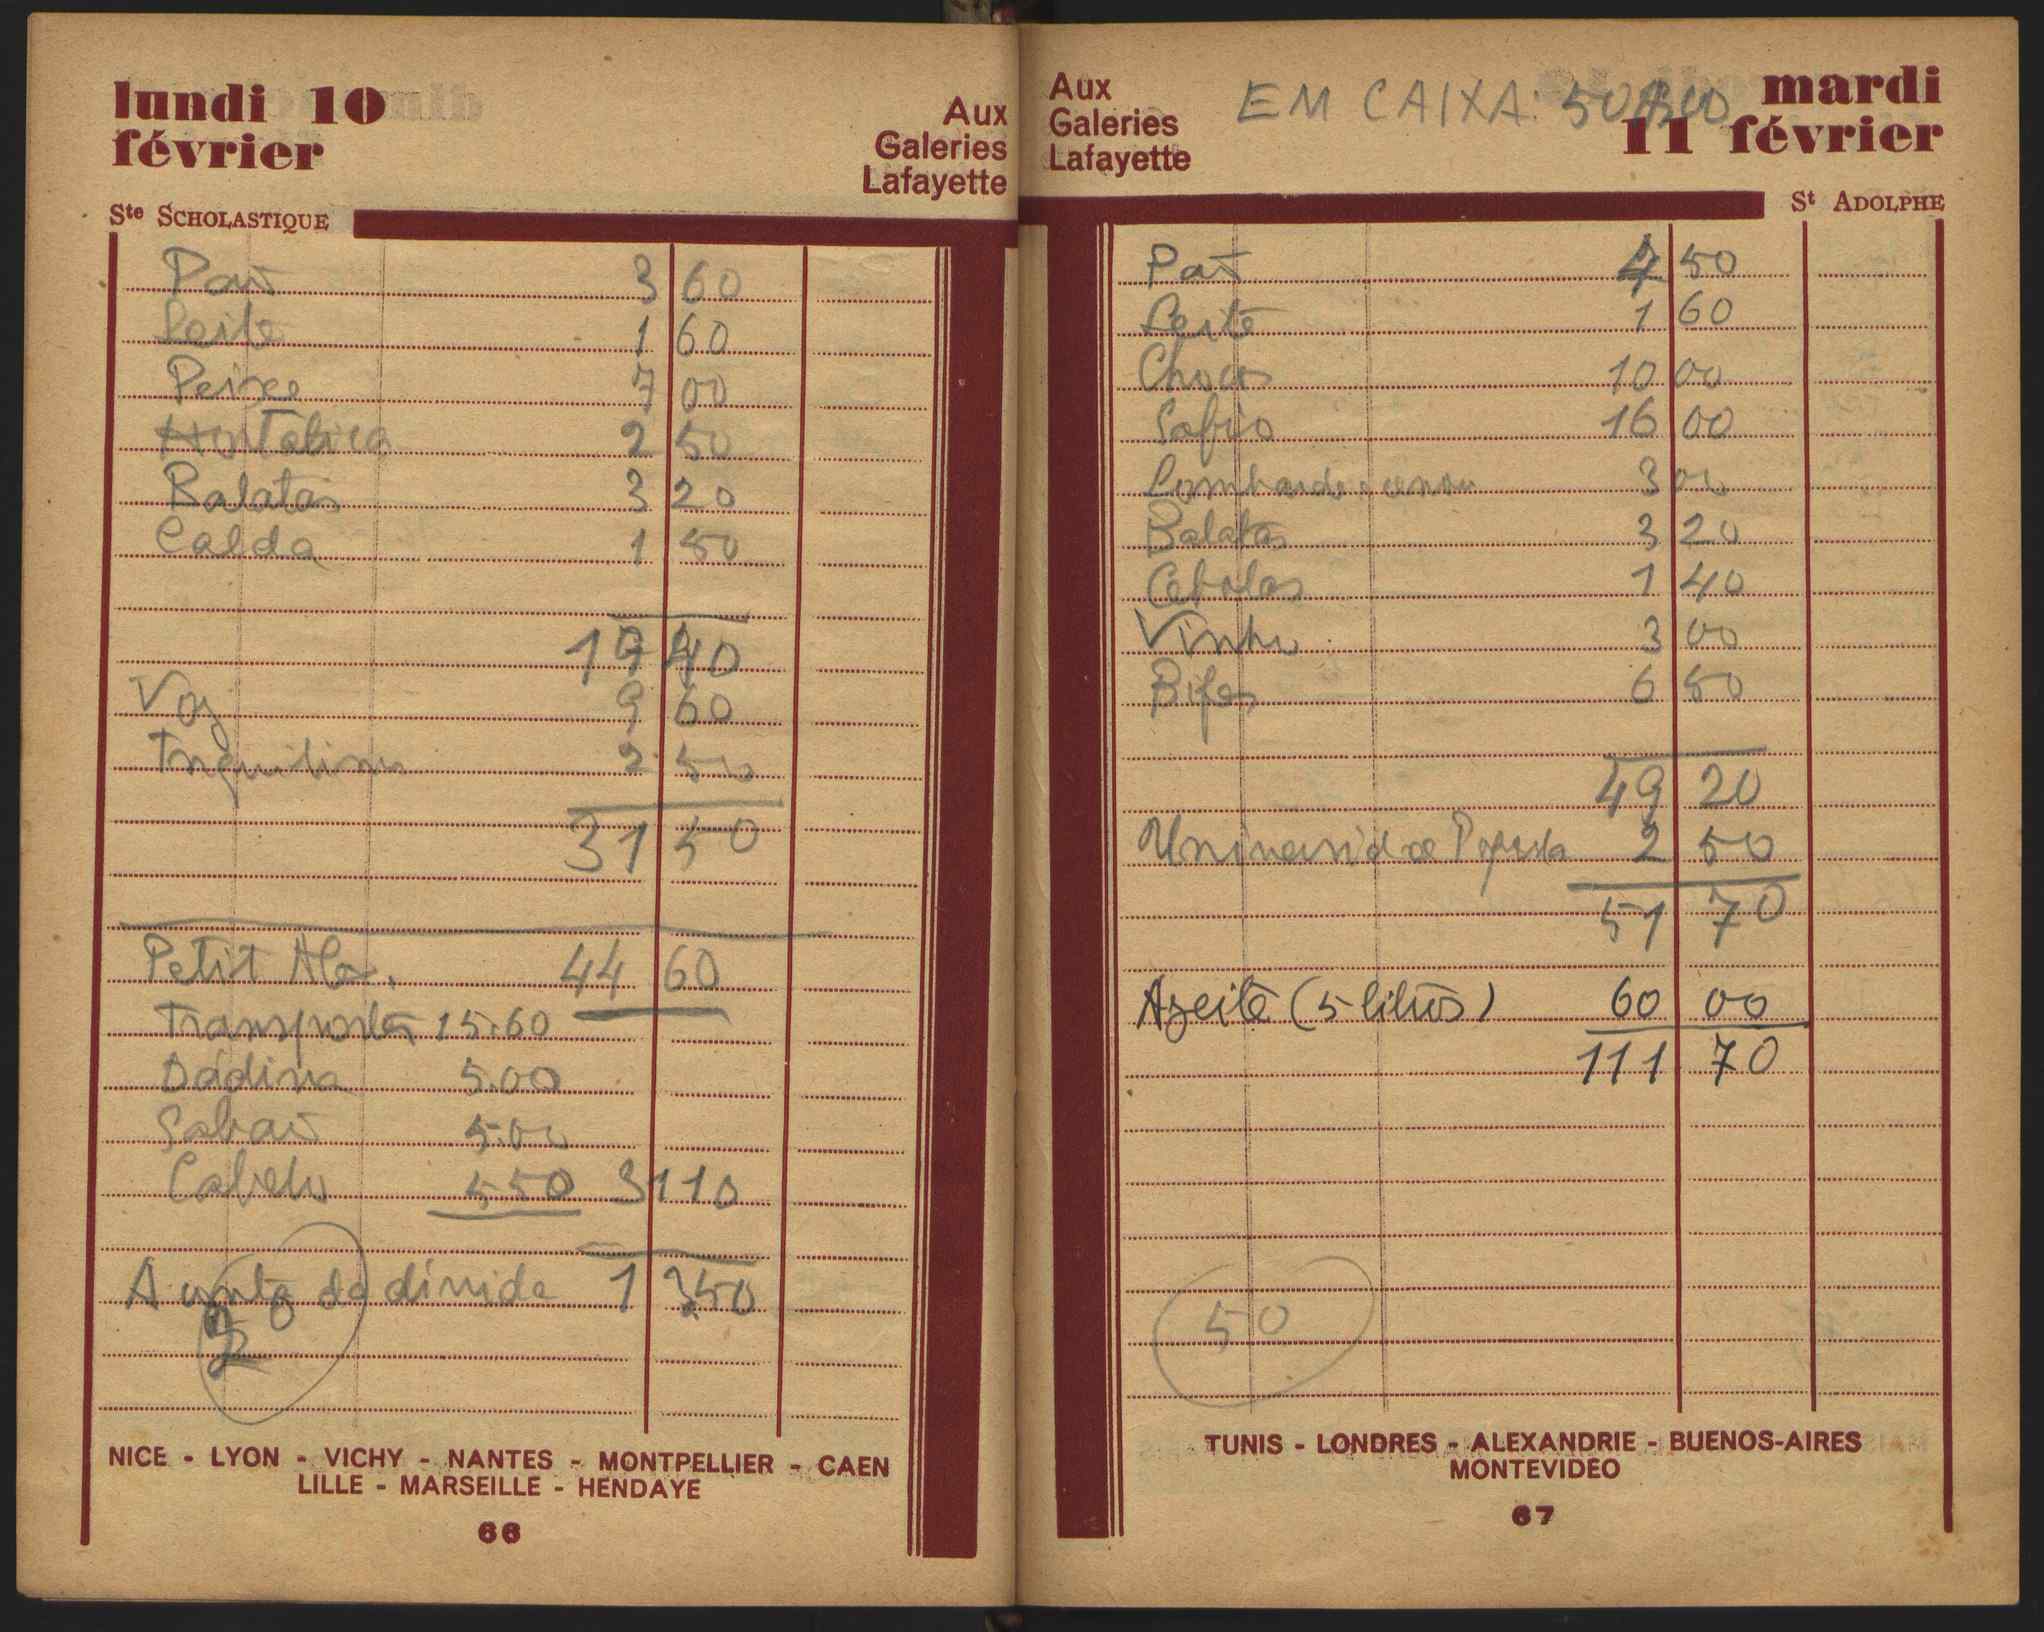 lundi 10
février
Aux
Galeries
Lafayette
Ste SCHOLASTIQUE
Pão 3 60
Leite 1 60
Peixe 7 00
Hortaliça 2 50
Batatas 3 20
Calda 1 50
19 40
Voz 9 60
Inquilino 2 50
31 50
Petit Alex. 44 60
Transportes 15.60
Dádiva 5.00
Sabão 5.00
Cabelo 5.50 31 10
A conta da dívida 1 350
2
NICE - LYON - VICHY - NANTES - MONTPELLIER - CAEN
LILLE - MARSEILLE - HENDAYE
66
Aux
Galeries
Lafayette
EM CAIXA:
mardi
11 février
St ADOLPHE
Pão 4 50
Leite 1 60
Chocos 10 00
Safio 16 00
Lombardo e cenou 3 00
Batatas 3 20
Cebolas 1 40
Vinho 3 00
Bifes 6 50
49 20
Universidade Popular 2 50
51 70
Azeite (5 litros) 60 00
111 70
50
TUNIS - LONDRES - ALEXANDRIE - BUENOS-AIRES
MONTEVIDEO
67